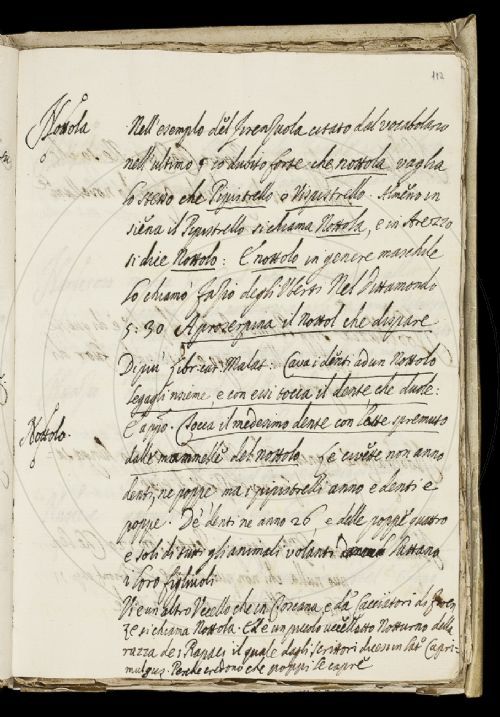 112
Nottola
Nell'esempio del Firenzuola citato dal vocabolario
nell'ultimo § io dubito forte che nottola vaglia
lo stesso che Pipistrello o Vispistrello. Almeno in
siena il Pipistrello si chiama Nottola, e in Arezzo
si dice Nottolo: E nottolo in genere maschile
lo chiamò Fazio degli Uberti Nel Dittamondo
5:30 A proserpina il Nottol che dispare
Di più Libr: cur: Malat: Cava i denti ad un Nottolo
legagli insieme, e con essi tocca il dente che duole:
E app.o Tocca il medesimo dente con latte spremuto
dalle mammelle del nottolo. Le civette non anno
Nottolo.
denti, ne poppe ma i pipistrelli anno e denti e
poppe. De' denti ne anno 26 e delle poppe quattro
e soli di tutti gli animali volanti lattano
i loro figliuoli
Vi è un altro Uccello che in Toscana, e da' Cacciatori di Firen
ze si chiama Nottola. Ed è un piccolo uccelletto Notturno della
razza de i Rapaci il quale dagli Scrittori dicesi in lat: Capri-
mulgus. Perche credono che poppi le capre